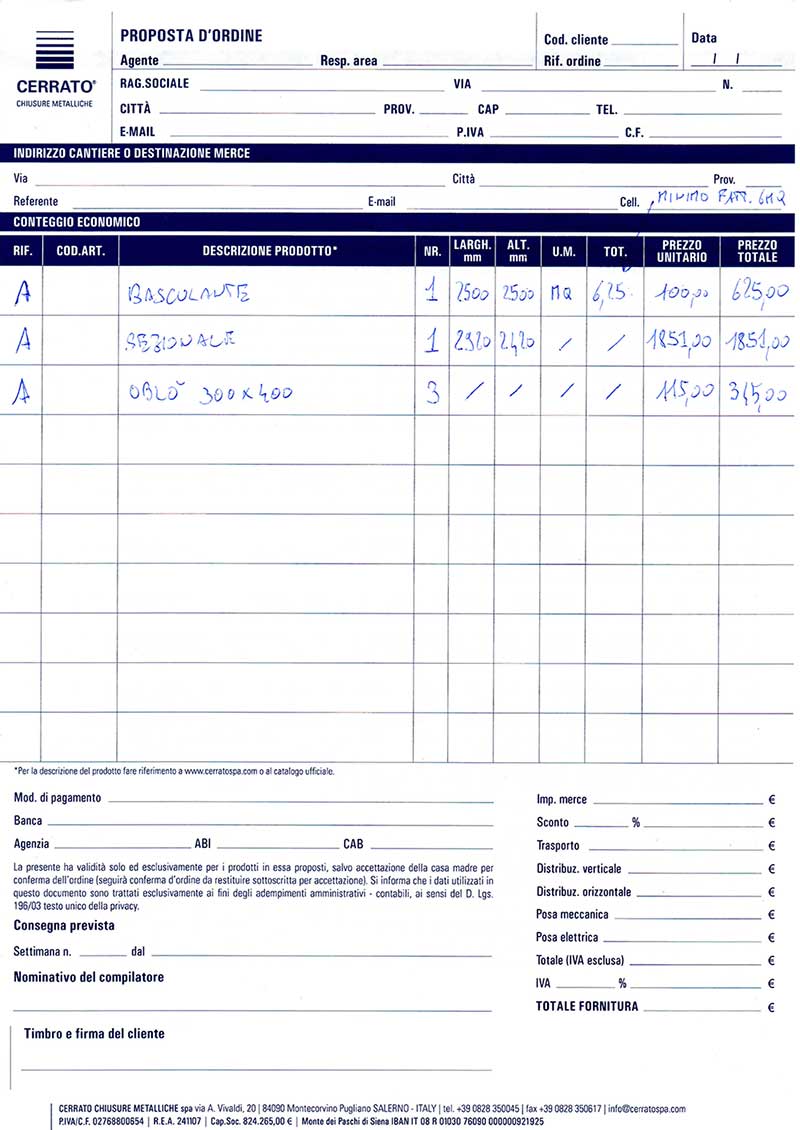 CERRATO®
CHIUSURE METALLICHE
PROPOSTA D'ORDINE
Agente Resp. area
Cod. cliente
Rif. ordine
Data
/ /
RAG.SOCIALE VIA N.
CITTÀ PROV. CAP TEL.
E-MAIL P.IVA C.F.
INDIRIZZO CANTIERE O DESTINAZIONE MERCE
Via Città Prov.
Referente E-mail Cell. MINIMO FATT. 6MQ
CONTEGGIO ECONOMICO
RIF. COD.ART. DESCRIZIONE PRODOTTO* NR. LARGH. mm ALT. mm U.M. TOT. PREZZO UNITARIO PREZZO TOTALE
A BASCULANTE 1 2500 2500 MQ 6,25 100,00 625,00
A SEZIONALE 1 2320 2420 / / 1851,00 1851,00
A OBLÒ 300x400 3 / / / / 115,00 345,00
*Per la descrizione del prodotto fare riferimento a www.cerratospa.com o al catalogo ufficiale.
Mod. di pagamento
Banca
Agenzia ABI CAB
La presente ha validità solo ed esclusivamente per i prodotti in essa proposti, salvo accettazione della casa madre per
conferma dell'ordine (seguirà conferma d'ordine da restituire sottoscritta per accettazione). Si informa che i dati utilizzati in
questo documento sono trattati esclusivamente ai fini degli adempimenti amministrativi - contabili, ai sensi del D. Lgs.
196/03 testo unico della privacy.
Consegna prevista
Settimana n. dal
Nominativo del compilatore
Timbro e firma del cliente
Imp. merce €
Sconto % €
Trasporto €
Distribuz. verticale €
Distribuz. orizzontale €
Posa meccanica €
Posa elettrica €
Totale (IVA esclusa) €
IVA % €
TOTALE FORNITURA €
CERRATO CHIUSURE METALLICHE spa via A. Vivaldi, 20 | 84090 Montecorvino Pugliano SALERNO - ITALY | tel. +39 0828 350045 | fax +39 0828 350617 | info@cerratospa.com
P.IVA/C.F. 02768800654 | R.E.A. 241107 | Cap.Soc. 824.265,00 € | Monte dei Paschi di Siena IBAN IT 08 R 01030 76090 000000921925